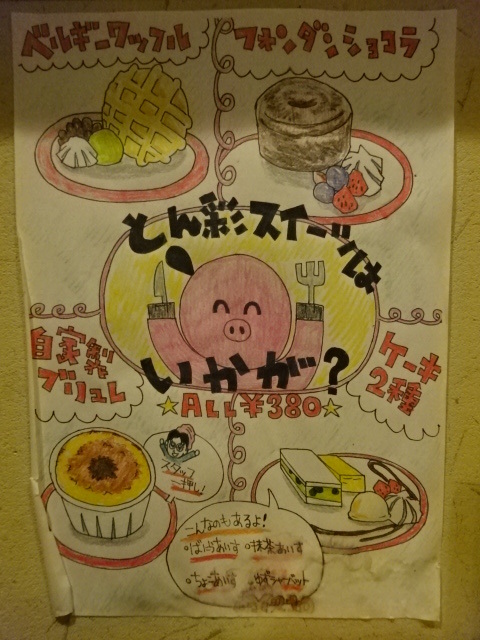 ベルギーワッフル
フォンダンショコラ
とん彩スイーツは
いかが?
自家製
ブリュレ
ケーキ
2種
ALL ¥380
スタッフ
一押し!
こんなのもあるよ!
•ばにらあいす •抹茶あいす
•ちょこあいす •ゆずシャーベット